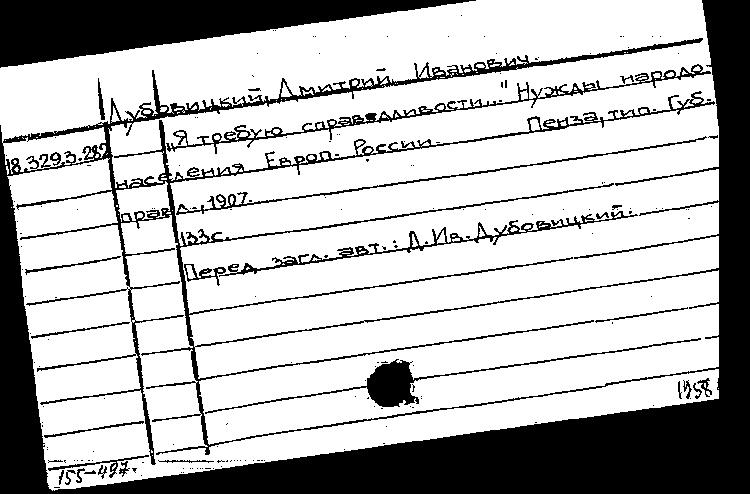 Дубовицкий, Дмитрий Иванович.
18.329.3.282
„Я требую справедливости..." Нужды народо-
населения Европ. России. Пенза, тип. Губ.
правл., 1907.
133 с.
Перед загл. авт.: Д.Ив.Дубовицкий.
1958
155-497.